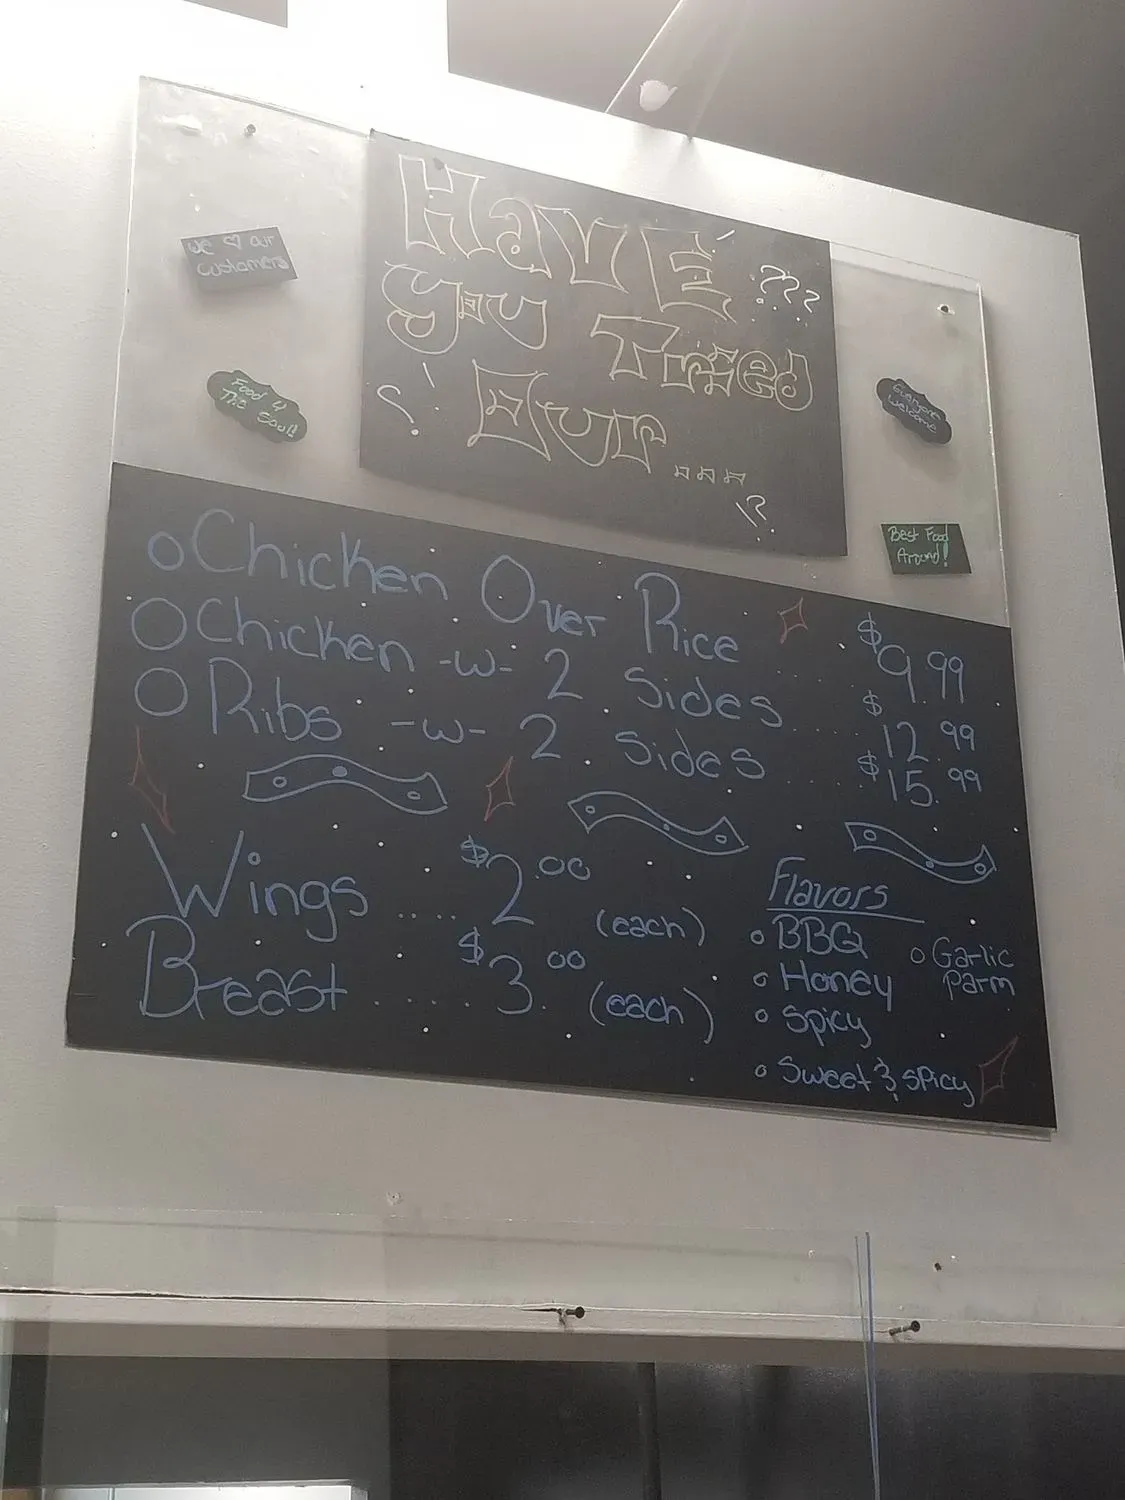 We ♡ our
customers
Food 4
The Soul!
HAVE ???
you Tried
? Our...
!?
Everyone
Welcome
Best Food
Around!
Chicken Over Rice .... $9.99
Chicken -w- 2 Sides .... $12.99
Ribs -w- 2 Sides .... $15.99
Wings ..... $2.00 (each)
Breast ..... $3.00 (each)
Flavors
BBQ
Honey
Spicy
Sweet & Spicy
Garlic
Parm